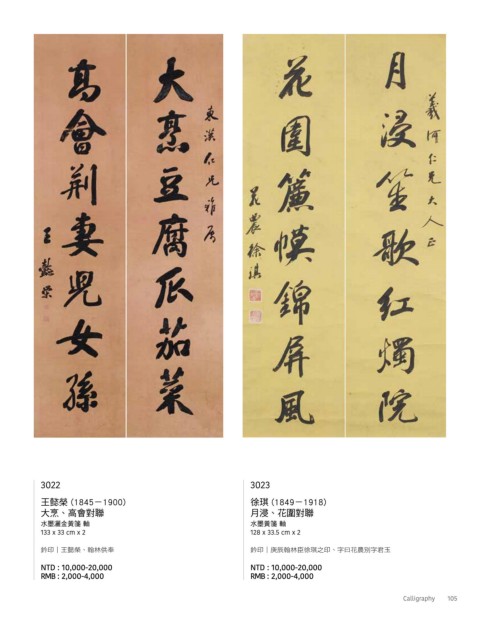 大烹豆腐瓜茄菜
東漢仁兄雅属
高會荆妻兒女孫
王懿榮
月浸笙歌红燭院
羲河仁兄大人正
花圍簾幙錦屏風
花農徐琪
3022
王懿榮（1845－1900）
大烹、高會對聯
水墨灑金黃箋 軸
133 x 33 cm x 2
鈐印｜王懿榮、翰林供奉
NTD : 10,000-20,000
RMB : 2,000-4,000
3023
徐琪（1849－1918）
月浸、花圍對聯
水墨黃箋 軸
128 x 33.5 cm x 2
鈐印｜庚辰翰林臣徐琪之印、字曰花農別字君玉
NTD : 10,000-20,000
RMB : 2,000-4,000
Calligraphy 105